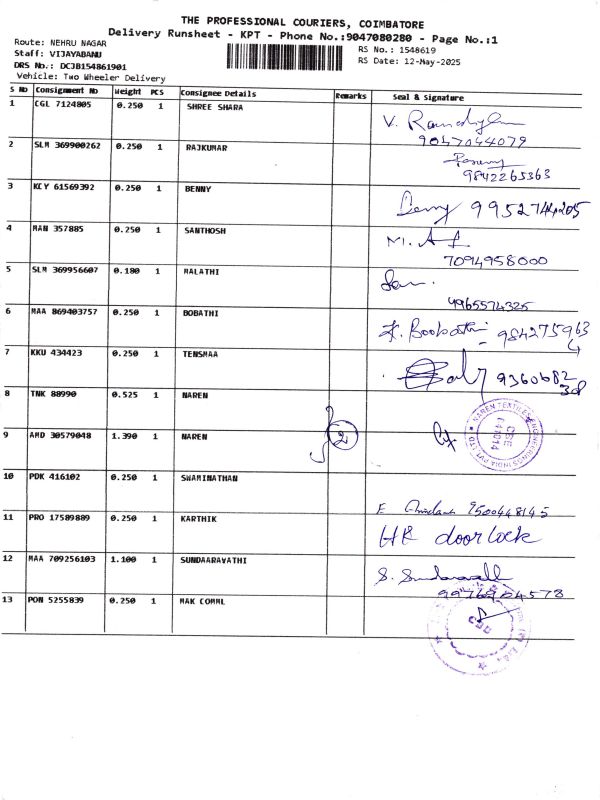 THE PROFESSIONAL COURIERS, COIMBATORE
Delivery Runsheet - KPT - Phone No.:9047080280 - Page No.:1
Route: NEHRU NAGAR
RS No.: 1548619
Staff: VIJAYABANU
RS Date: 12-May-2025
DRS No.: DCJB154861901
Vehicle: Two Wheeler Delivery
S No Consignment No Weight PCS Consignee Details Remarks Seal & Signature
1 CGL 7124805 0.250 1 SHREE SHARA
V.
9047044079
2 SLM 369900262 0.250 1 RAJKUMAR
9842265363
3 KCY 61569392 0.250 1 BENNY
Benny 9952744205
4 MAN 357885 0.250 1 SANTHOSH
M. A
7094958000
5 SLM 369956607 0.180 1 MALATHI
4965574325
6 MAA 869403757 0.250 1 BOBATHI
Boobathi - 984275963
7 KKU 434423 0.250 1 TENSMAA
9360682
308
8 TNK 88990 0.525 1 NAREN
NAREN TEXTILE ENGINEERINGS INDIA PVT LTD
CBE
641014
9 AMD 30579048 1.390 1 NAREN
2
10 PDK 416102 0.250 1 SWAMINATHAN
9500448145
11 PRO 17589889 0.250 1 KARTHIK
HK doorlock
12 MAA 709256103 1.100 1 SUNDAARAVATHI
S.
9976904578
13 PON 5255839 0.250 1 MAK COMML